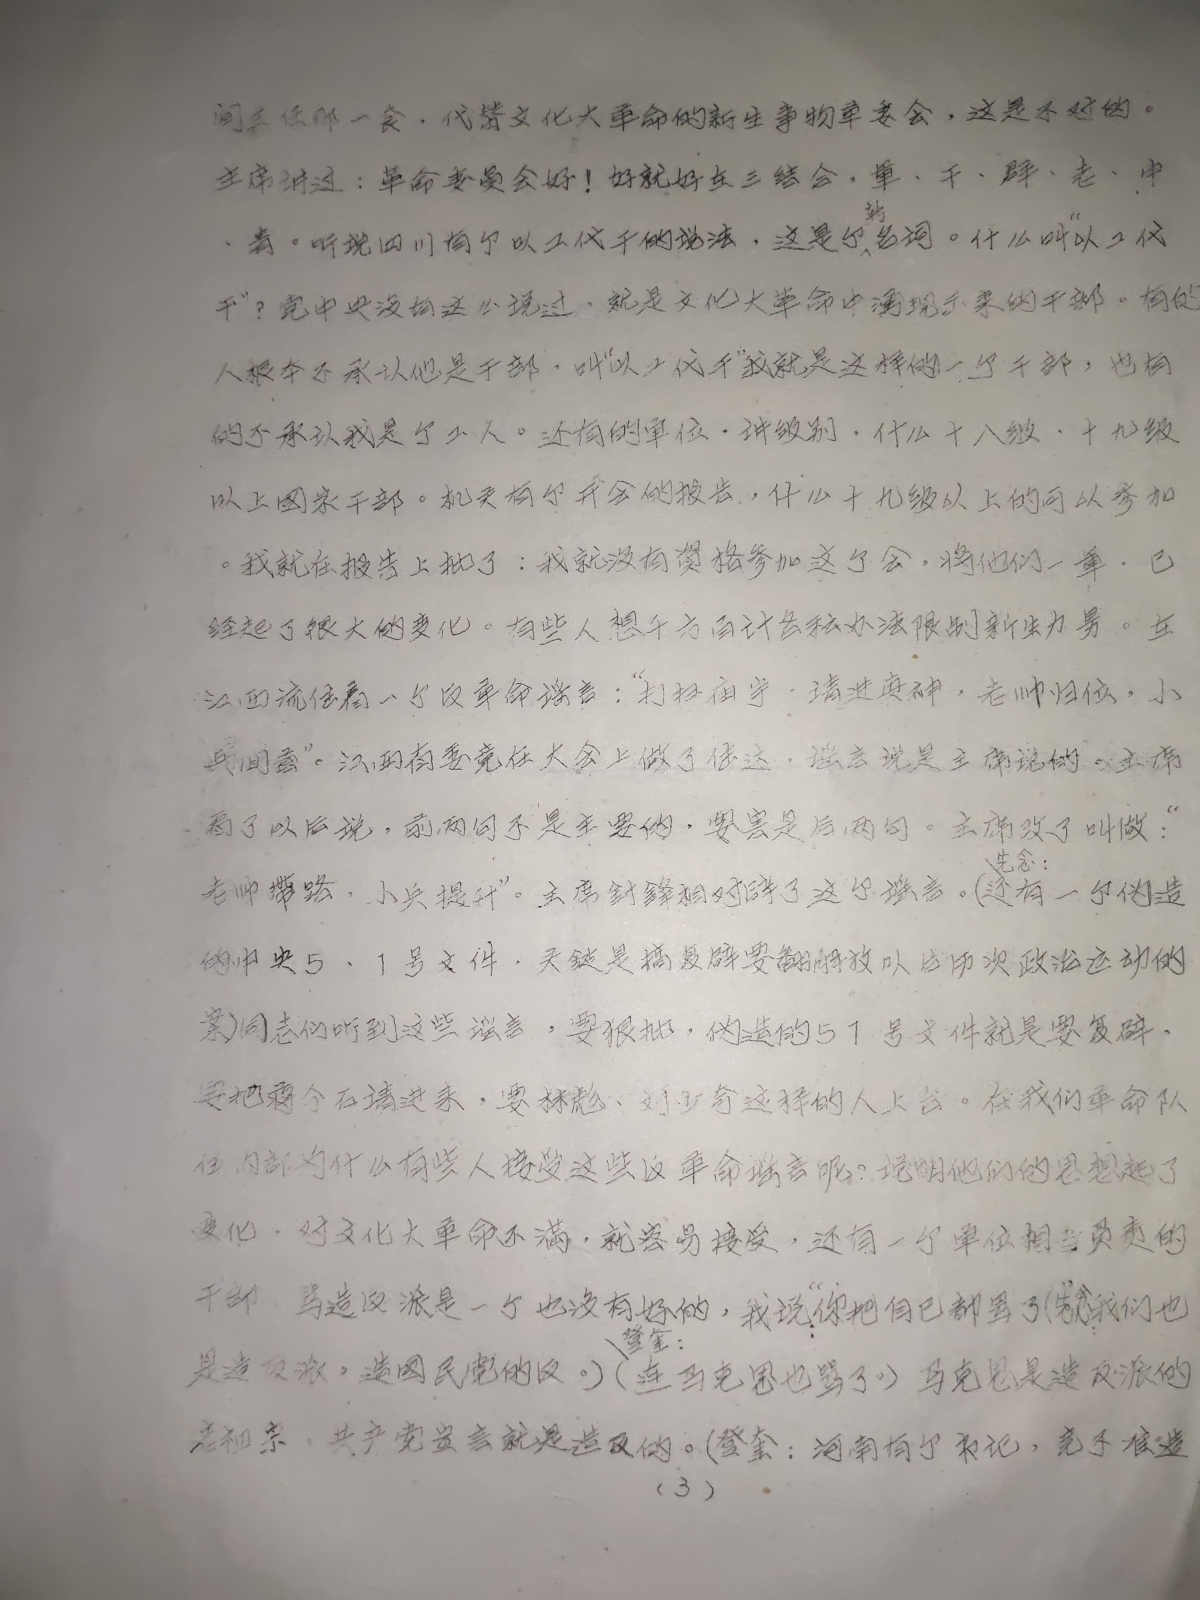 间主任那一套，代替文化大革命的新生事物革委会，这是不对的。
主席讲过：革命委员会好！好就好在三结合，军、干、群、老、中
、青。听说四川有个以工代干的说法，这是个新名词。什么叫“以工代
干”？党中央没有这么说过，就是文化大革命中涌现出来的干部。有的
人根本不承认他是干部，叫“以工代干”我就是这样的一个干部，也有
的不承认我是个工人。还有的单位，讲级别，什么十八级、十九级
以上国家干部。机关有个开会的报告，什么十九级以上的可以参加
。我就在报告上批了：我就没有资格参加这个会，将他们一军，已
经起了很大的变化。有些人想千方百计各种办法限制新生力量。在
江西流传着一个反革命谣言：“打扫庙宇，请进真神，老帅归位，小
兵回营”。江西省委竟在大会上做了传达，谣言说是主席说的。主席
看了以后说，前两句不是主要的，要害是后两句。主席改了叫做：“
老帅带路，小兵提升”。主席针锋相对辟了这个谣言。（先念：还有一个伪造
的中央51号文件，关键是搞复辟要翻解放以后历次政治运动的
案）同志们听到这些谣言，要狠批，伪造的51号文件就是要复辟，
要把蒋介石请进来，要林彪、刘少奇这样的人上台。在我们革命队
伍内部为什么有些人接受这些反革命谣言呢？说明他们的思想起了
变化，对文化大革命不满，就容易接受，还有一个单位相当负责的
干部 骂造反派是一个也没有好的，我说“你把自己都骂了（先念：我们也
是造反派，造国民党的反。）（登奎：连马克思也骂了。）马克思是造反派的
老祖宗，共产党宣言就是造反的。（登奎：河南有个书记，竟不准造
（3）